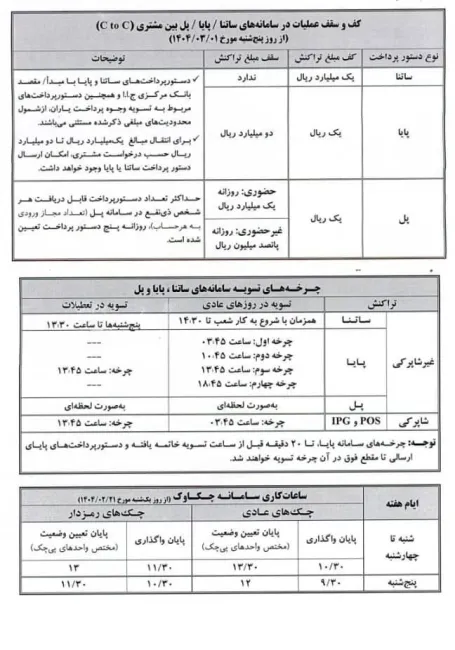 کف و سقف عملیات در سامانه‌های ساتنا / پایا / پل بین مشتری (C to C)
(از روز پنج‌شنبه مورخ ۱۴۰۴/۰۳/۰۱)
نوع دستور پرداخت کف مبلغ تراکنش سقف مبلغ تراکنش توضیحات
ساتنا یک میلیارد ریال ندارد
پایا یک ریال دو میلیارد ریال
✓ دستورپرداخت‌های ساتنا و پایا با مبدأ/ مقصد
بانک مرکزی ج.ا.ا و همچنین دستورپرداخت‌های
مربوط به تسویه وجوه پرداخت یاران، ازشمول
محدودیت‌های مبلغی ذکرشده مستثنی می‌باشند.
✓ برای انتقال مبالغ یک‌میلیارد ریال تا دو میلیارد
ریال حسب درخواست مشتری، امکان ارسال
دستور پرداخت ساتنا یا پایا وجود خواهد داشت.
پل یک ریال
حضوری: روزانه
یک میلیارد ریال
غیرحضوری: روزانه
پانصد میلیون ریال
حداکثر تعداد دستورپرداخت قابل دریافت هر
شخص ذی‌نفع در سامانه پل (تعداد مجاز ورودی
به هرحساب)، روزانه پنج دستور پرداخت تعیین
شده است.
چرخه‌های تسویه سامانه‌های ساتنا، پایا و پل
تراکنش تسویه در روزهای عادی تسویه در تعطیلات
غیرشاپرکی
ساتنا همزمان با شروع به کار شعب تا ۱۴:۳۰ پنج‌شنبه‌ها تا ساعت ۱۳:۳۰
پایا
چرخه اول: ساعت ۰۳:۴۵ ---
چرخه دوم: ساعت ۱۰:۴۵ ---
چرخه سوم: ساعت ۱۳:۴۵ چرخه: ساعت ۱۳:۴۵
چرخه چهارم: ساعت ۱۸:۴۵ ---
پل به‌صورت لحظه‌ای به‌صورت لحظه‌ای
شاپرکی POS و IPG چرخه: ساعت ۰۳:۴۵ چرخه: ساعت ۱۳:۴۵
توجه: چرخه‌های سامانه پایا، تا ۲۰ دقیقه قبل از ساعت تسویه خاتمه یافته و دستورپرداخت‌های پایای
ارسالی تا مقطع فوق در آن چرخه تسویه خواهند شد.
ساعات‌کاری سامانه چکاوک (از روز یک‌شنبه مورخ ۱۴۰۴/۰۲/۲۱)
ایام هفته چک‌های عادی چک‌های رمزدار
پایان واگذاری پایان تعیین وضعیت (مختص واحدهای بی‌چک) پایان واگذاری پایان تعیین وضعیت (مختص واحدهای بی‌چک)
شنبه تا چهارشنبه ۱۰/۳۰ ۱۳/۳۰ ۱۱/۳۰ ۱۳
پنج‌شنبه ۹/۳۰ ۱۲ ۱۰/۳۰ ۱۱/۳۰